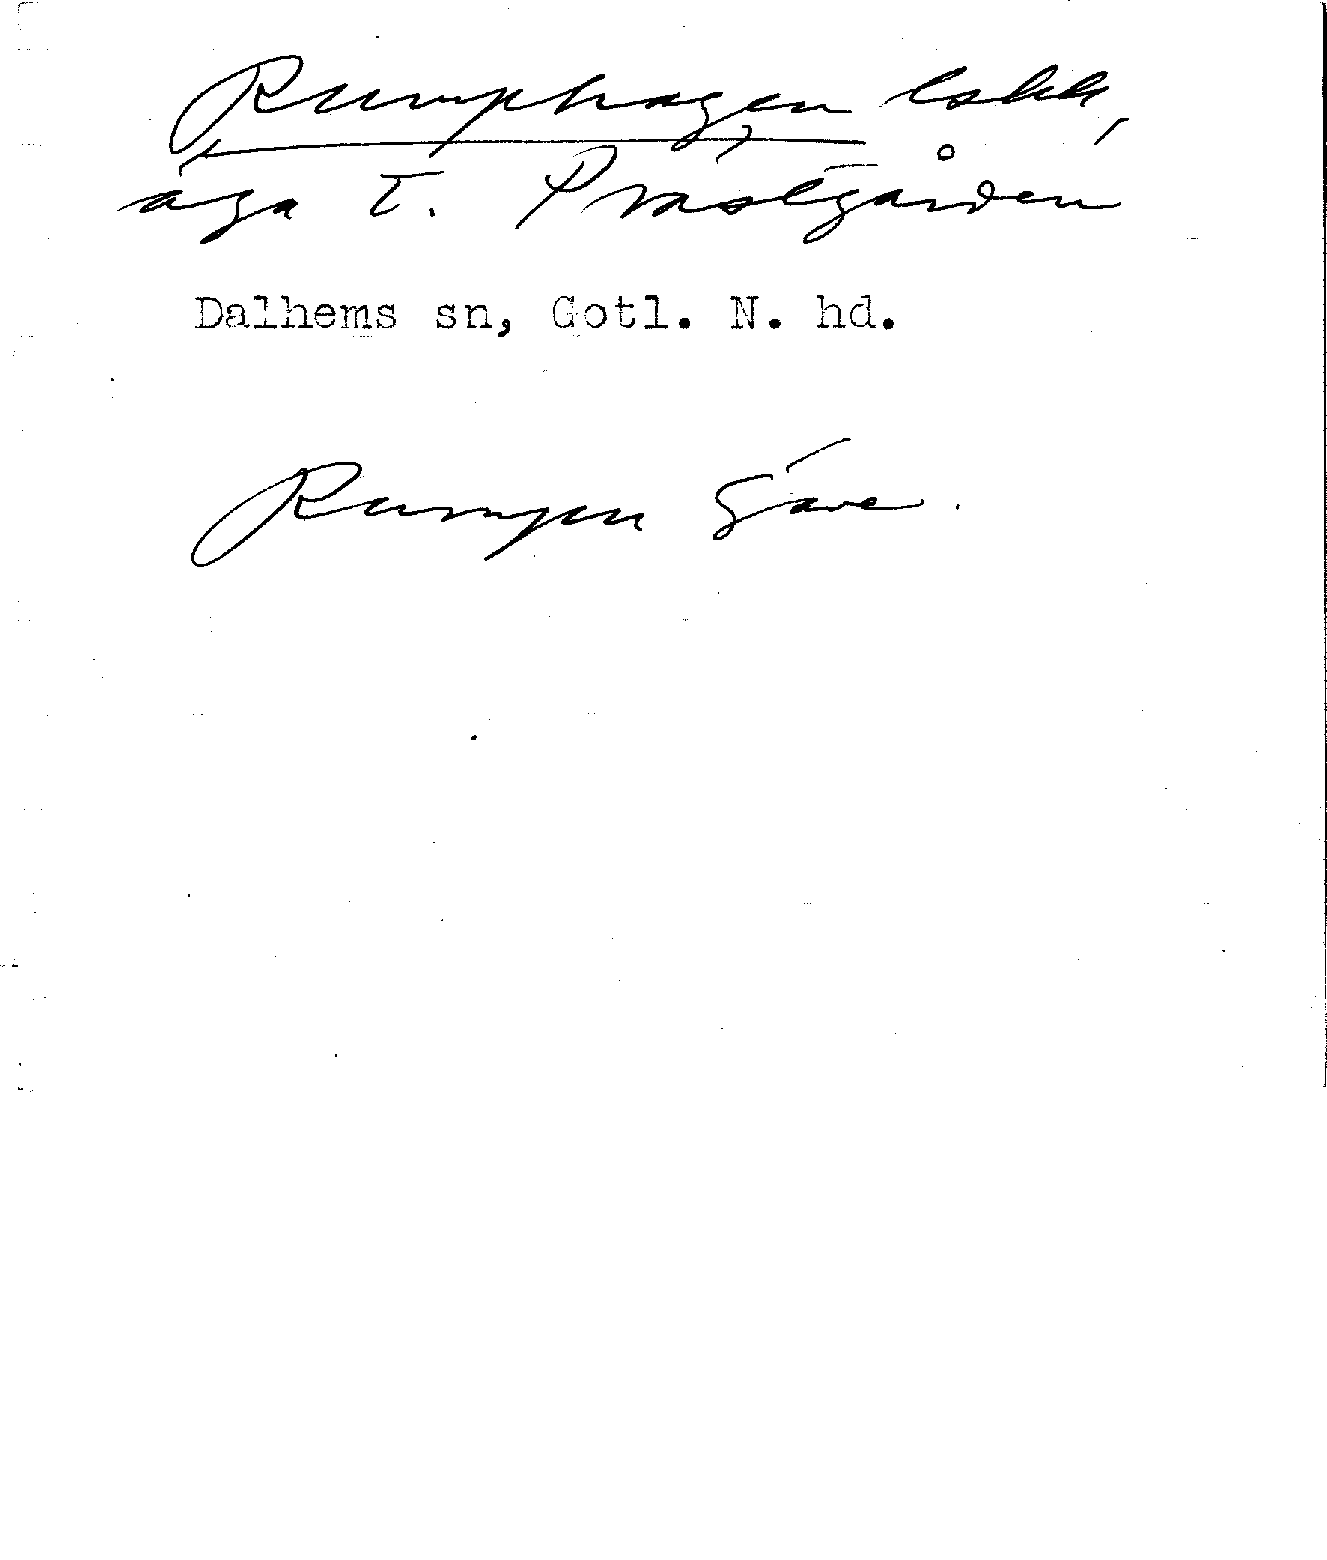 Rumphagen
äga t. Prästgården
Dalhems sn, Gotl. N. hd.
Rumpen Säve.